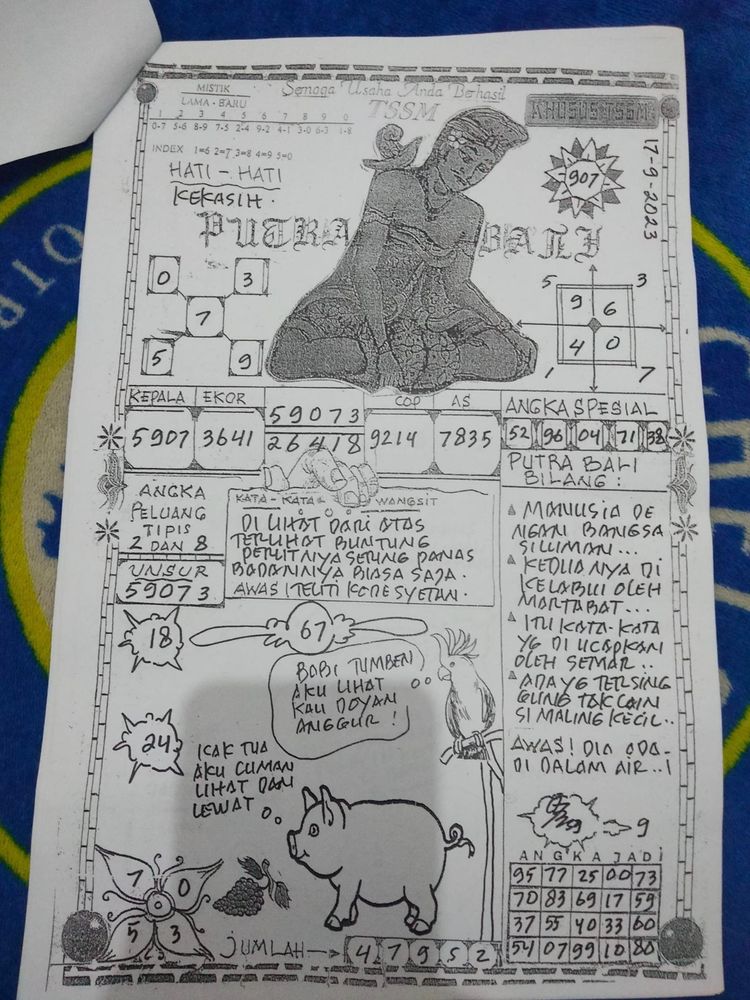 MISTIK
LAMA - BARU
1 2 3 4 5 6 7 8 9 0
0-7 5-6 8-9 7-5 2-4 9-2 4-1 3-0 6-3 1-8
INDEX 1=6 2=7 3=8 4=9 5=0
Semoga Usaha Anda Berhasil
TSSM
KHUSUS TSSM
HATI - HATI
KEKASIH.
907
17-9-2023
PUTRA BALI
0 3
7
5 9
5 3
9 6
4 0
1 7
KEPALA EKOR
5907 3641
59073
26418
COP AS
9214 7835
ANGKA SPESIAL
52 96 04 71 38
PUTRA BALI
BILANG :
ANGKA
PELUANG
TIPIS
2 DAN 8
UNSUR
59073
KATA - KATA = WANGSIT
DI LIHAT DARI ATAS
TERLIHAT BUNTUNG
PERUTNYA SERING PANAS
BADANNYA BIASA SAJA.
AWAS! TELITI KODE SYETAN.
MANUSIA DE
NGAN BANGSA
SILUMAN...
KEDUANYA DI
KELABUI OLEH
MARTABAT...
ITU KATA-KATA
YG DI UCAPKAN
OLEH SEMAR..
ADA YG TERSING
GUNG TAK LAIN
SI MALING KECIL..
AWAS! DIA ADA-
DI DALAM AIR..!
18
67
BABI TUMBEN
AKU LIHAT
KAU DOYAN
ANGGUR !
24
KAK TUA
AKU CUMAN
LIHAT DAN
LEWAT
9
ANGKA JADI
95 77 25 00 73
70 83 69 17 59
37 55 40 33 60
54 07 99 10 80
7 0
5 3
JUMLAH → 4 7 9 5 2
DIR